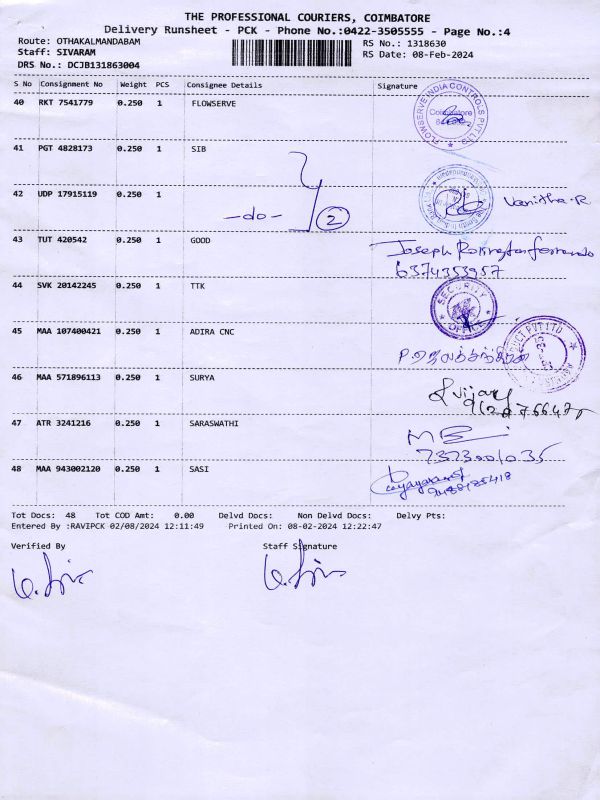 THE PROFESSIONAL COURIERS, COIMBATORE
Delivery Runsheet - PCK - Phone No.:0422-3505555 - Page No.:4
Route: OTHAKALMANDABAM RS No.: 1318630
Staff: SIVARAM RS Date: 08-Feb-2024
DRS No.: DCJB131863004
S No Consignment No Weight PCS Consignee Details Signature
40 RKT 7541779 0.250 1 FLOWSERVE
FLOWSERVE INDIA CONTROLS PVT LTD
Coimbatore
41 PGT 4828173 0.250 1 SIB
42 UDP 17915119 0.250 1 -do- 2 Vanitha.R
43 TUT 420542 0.250 1 GOOD Joseph
6374353957
44 SVK 20142245 0.250 1 TTK
SECURITY
OFFICE
45 MAA 107400421 0.250 1 ADIRA CNC
46 MAA 571896113 0.250 1 SURYA Vijay
47 ATR 3241216 0.250 1 SARASWATHI
7373001035
48 MAA 943002120 0.250 1 SASI
Tot Docs: 48 Tot COD Amt: 0.00 Delvd Docs: Non Delvd Docs: Delvy Pts:
Entered By :RAVIPCK 02/08/2024 12:11:49 Printed On: 08-02-2024 12:22:47
Verified By Staff Signature